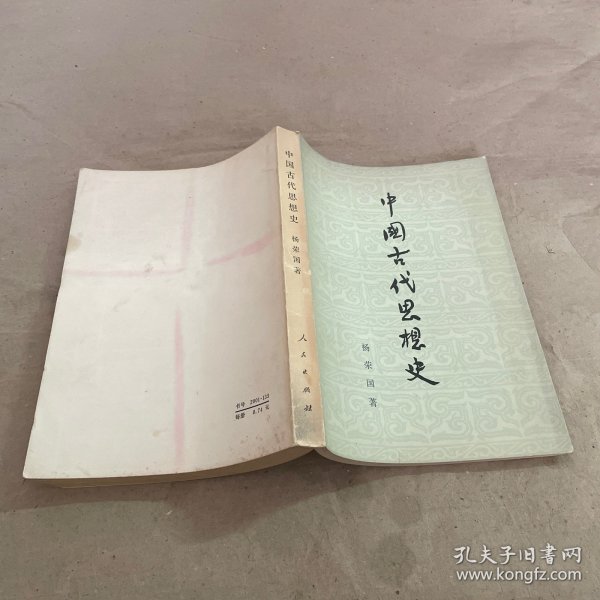 中國古代思想史
杨荣国著
中国古代思想史
杨荣国著
人民出版社
书号 2001·125
每册 0.74 元
孔夫子旧书网
www.kongfz.com